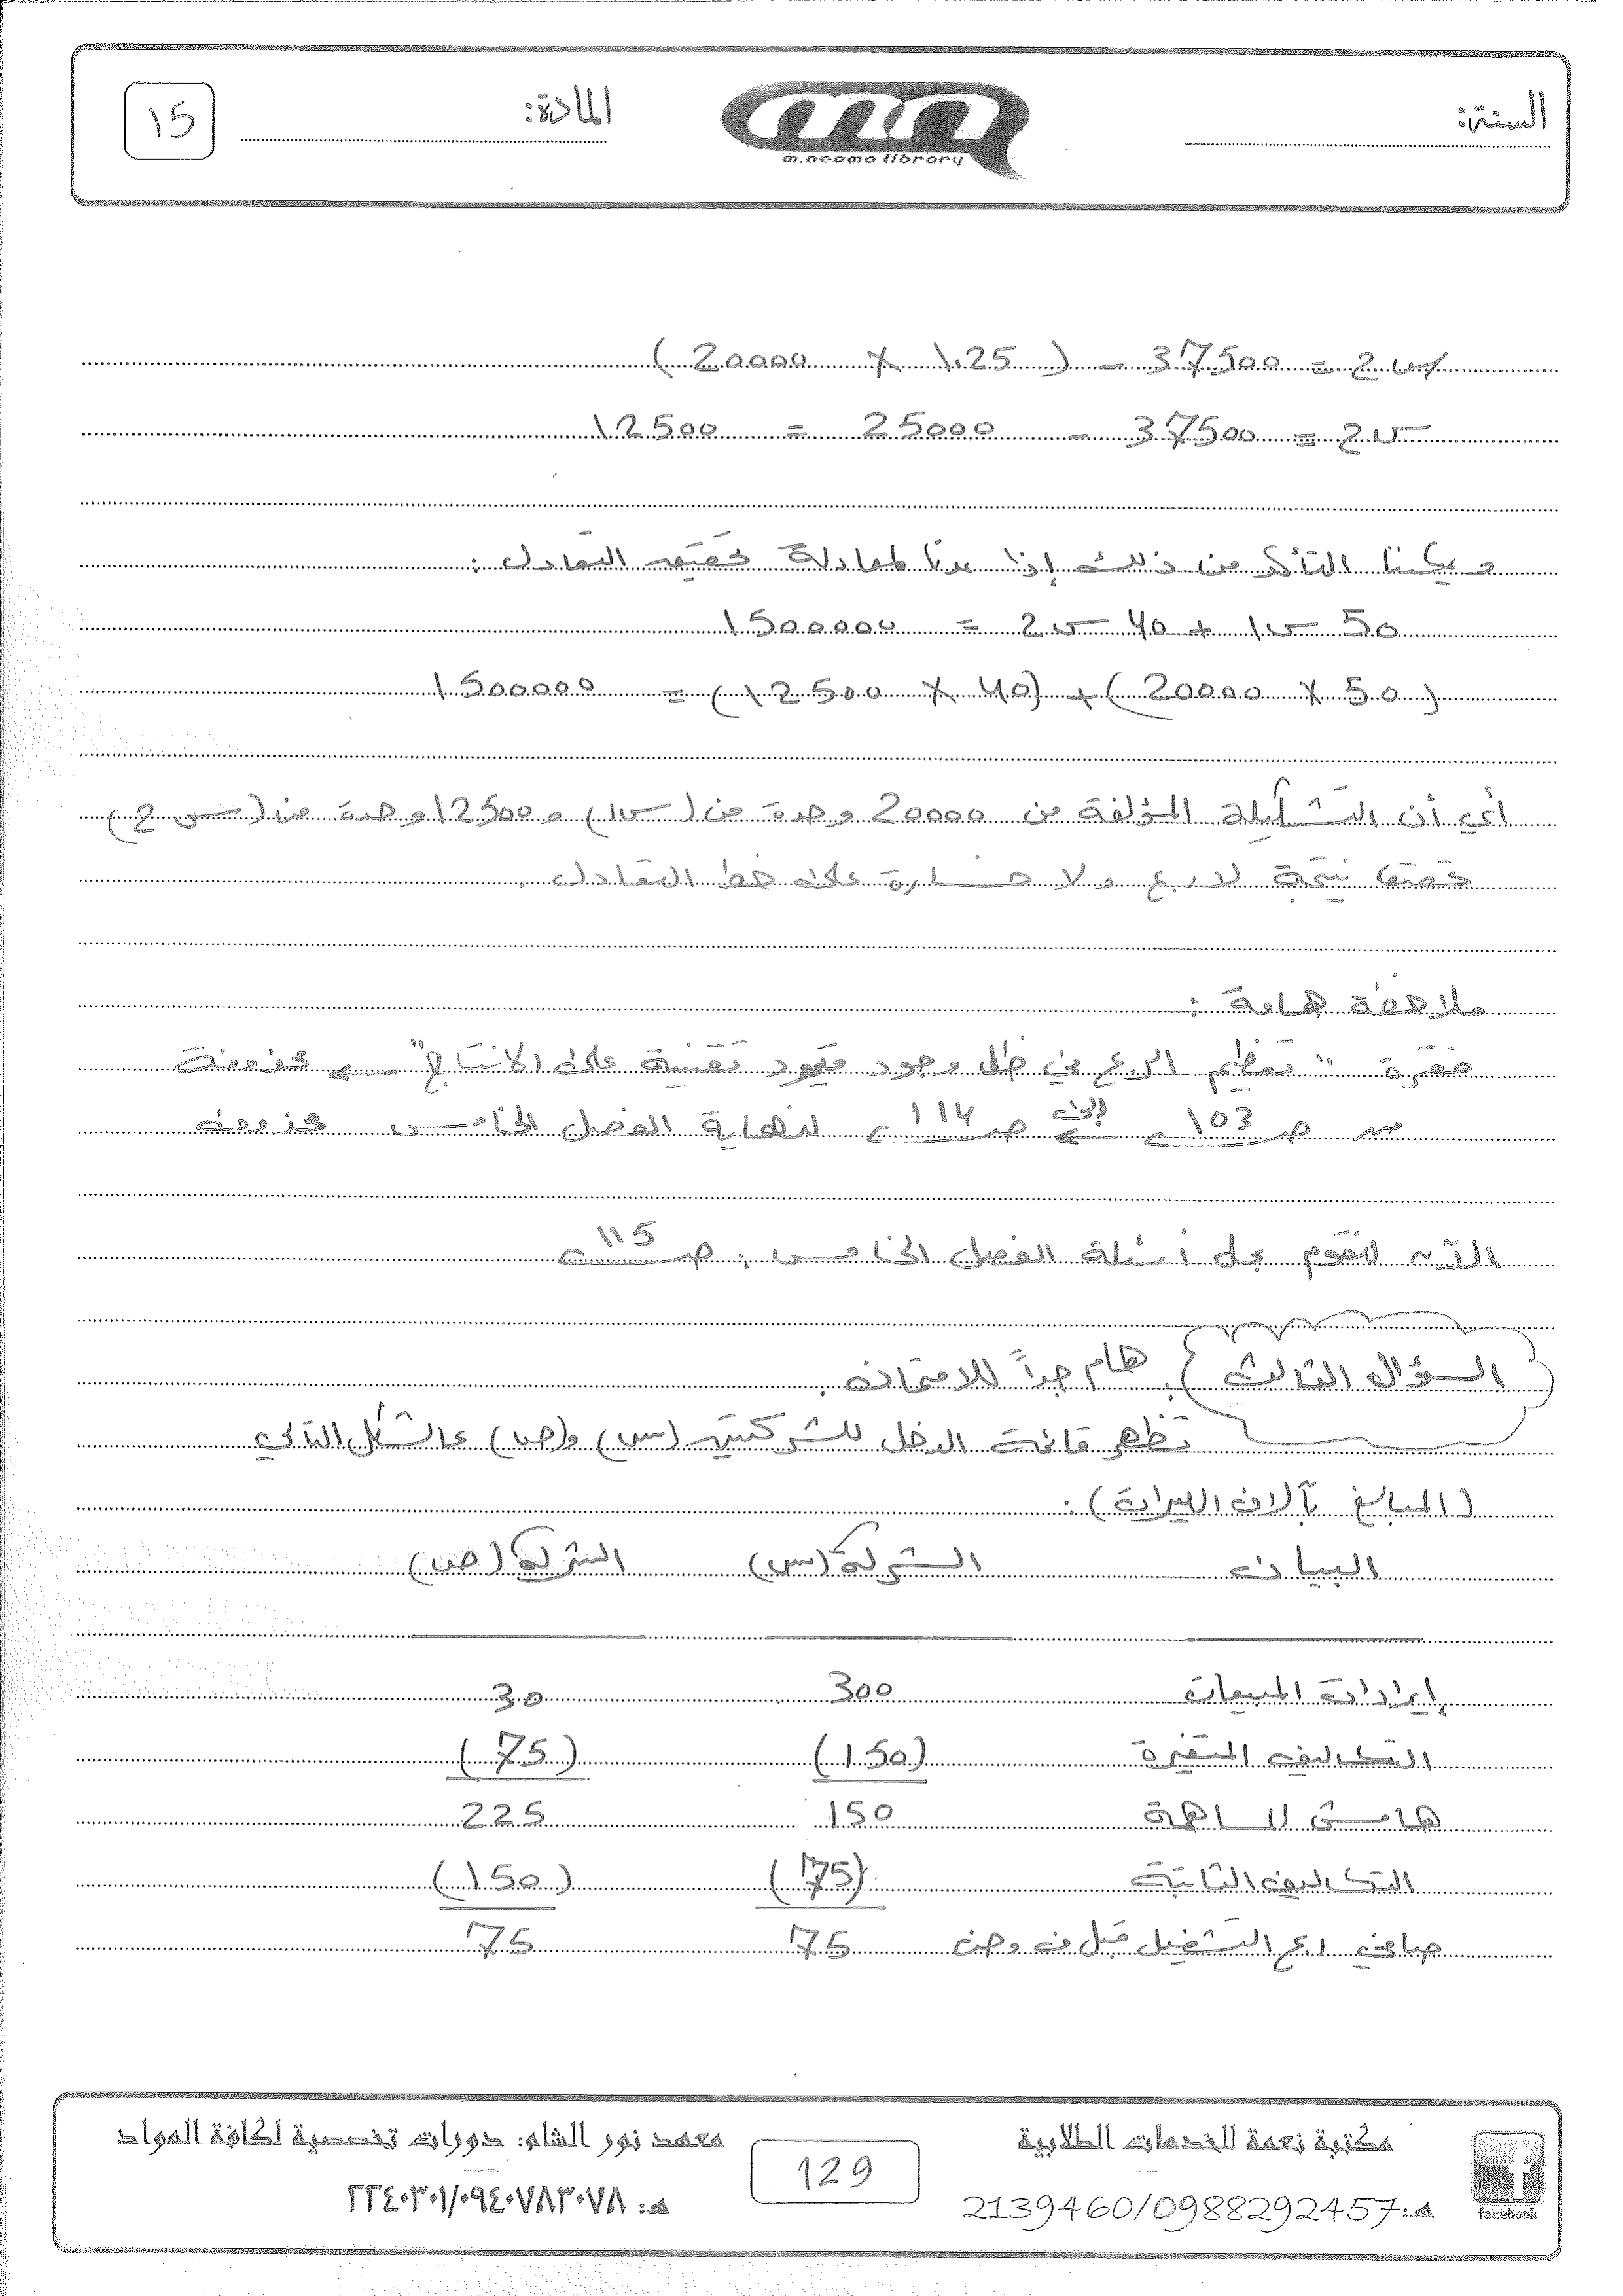 السنة:
m.neomo library
المادة:
15
س2 = 37500 - (1.25 × 20000)
س2 = 37500 - 25000 = 12500
ويمكننا التأكد من ذلك إذا عدنا لمعادلة تحقيق التعادل :
50 س1 + 40 س2 = 1500000
(50 × 20000) + (40 × 12500) = 1500000
أي أن التشكيلة المؤلفة من 20000 وحدة من (س1) و 12500 وحدة من (س2)
تحقق نتيجة لا ربح ولا خسارة على خط التعادل .
ملاحظة هامة :
فقرة " تعظيم الربح في ظل وجود قيود تقنية على الانتاج" ← محذوفة
من ص 103 إلى ← ص 114 لنهاية الفصل الخامس محذوف
الآن لنقوم بحل أسئلة الفصل الخامس : ص 115
السؤال الثالث : هام جداً للامتحان .
تظهر قائمة الدخل للشركتين (س) و(ص) كالشكل التالي
(المبالغ بآلاف الليرات) :
البيان الشركة (س) الشركة (ص)
إيرادات المبيعات 300 30
التكاليف المتغيرة (150) (75)
هامش المساهمة 150 225
التكاليف الثابتة (75) (150)
صافي ربح التشغيل قبل ف وض 75 75
مكتبة نعمة للخدمات الطلابية
هـ: 2139460/0988292457
facebook
129
معهد نور الشام: دورات تخصصية لكافة المواد
هـ: ٢٢٤٠٣٠١/٠٩٤٠٧٨٣٠٧٨